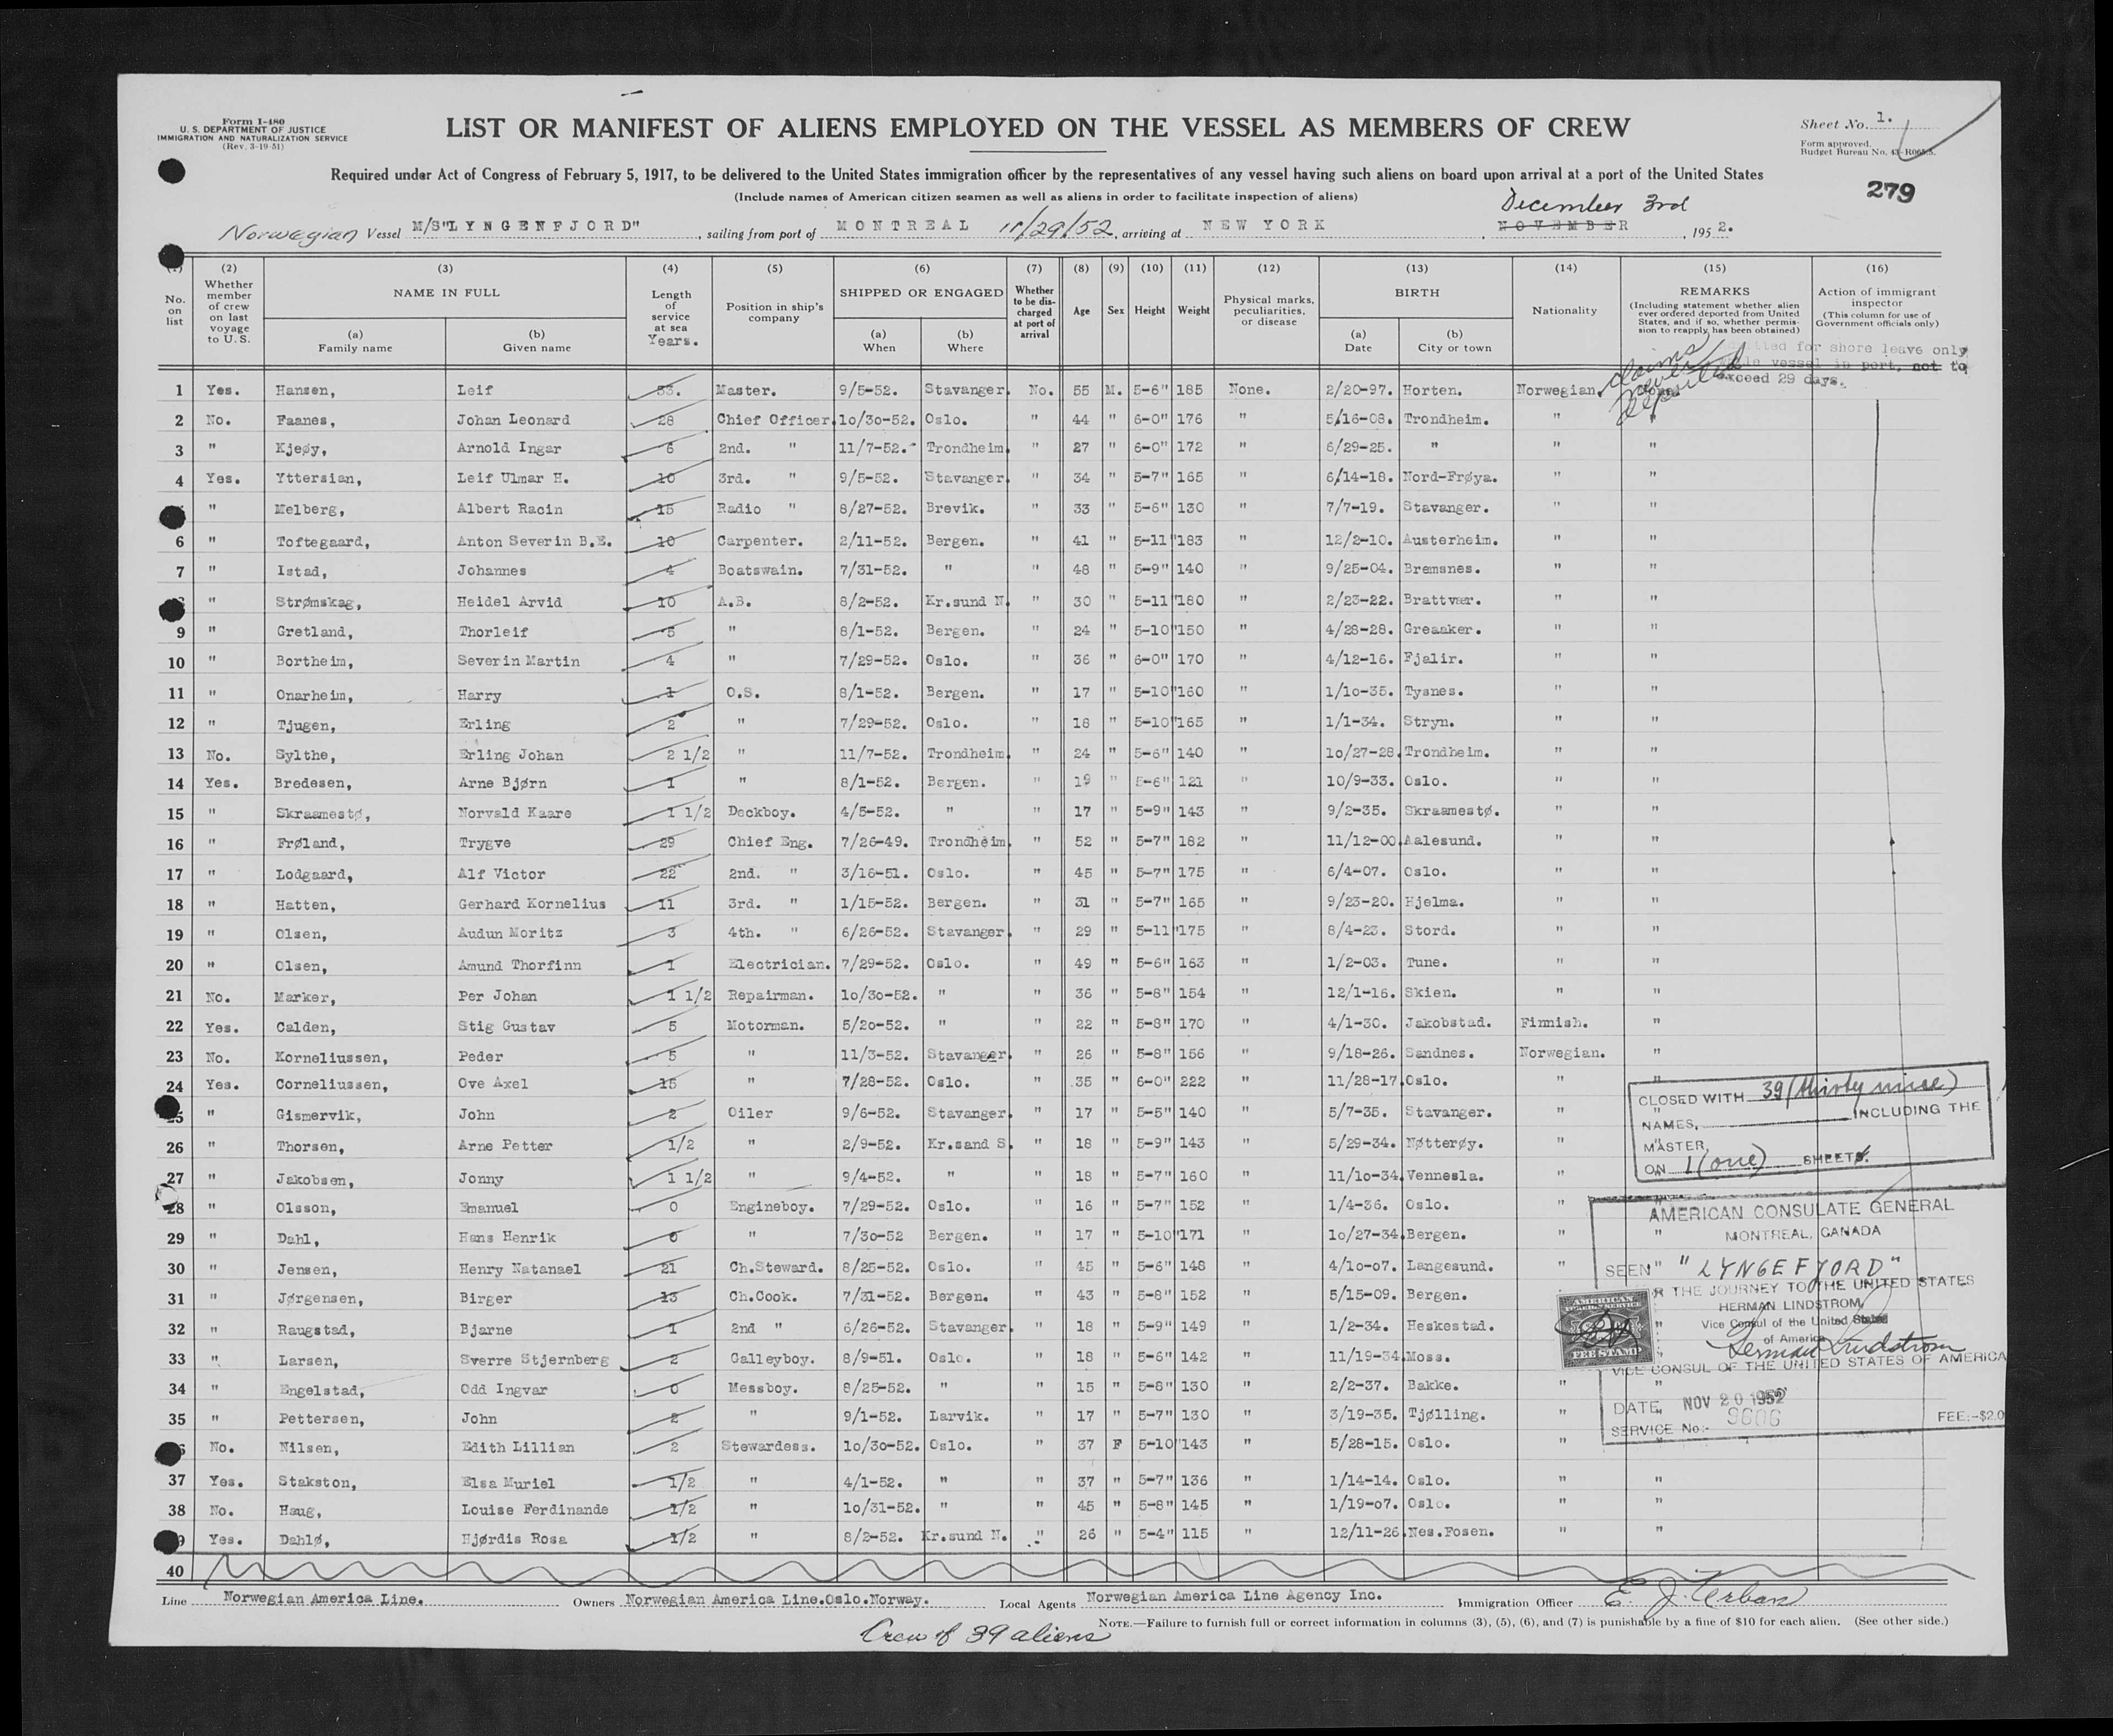 Form I-480
U. S. DEPARTMENT OF JUSTICE
IMMIGRATION AND NATURALIZATION SERVICE
(Rev. 3-19-51)
LIST OR MANIFEST OF ALIENS EMPLOYED ON THE VESSEL AS MEMBERS OF CREW
Sheet No. 1.
Form approved.
Budget Bureau No.
Required under Act of Congress of February 5, 1917, to be delivered to the United States immigration officer by the representatives of any vessel having such aliens on board upon arrival at a port of the United States
279
(Include names of American citizen seamen as well as aliens in order to facilitate inspection of aliens)
December 3rd
Norwegian Vessel M/S"LYNGENFJORD", sailing from port of MONTREAL 11/29/52, arriving at NEW YORK, NOVEMBER, 1952.
(1) No. on list
(2) Whether member of crew on last voyage to U. S.
(3) NAME IN FULL (a) Family name (b) Given name
(4) Length of service at sea Years.
(5) Position in ship's company
(6) SHIPPED OR ENGAGED (a) When (b) Where
(7) Whether to be discharged at port of arrival
(8) Age
(9) Sex
(10) Height
(11) Weight
(12) Physical marks, peculiarities, or disease
(13) BIRTH (a) Date (b) City or town
(14) Nationality
(15) REMARKS (Including statement whether alien ever ordered deported from United States, and if so, whether permission to reapply has been obtained)
(16) Action of immigrant inspector (This column for use of Government officials only)
for shore leave only
vessel in port, not to
exceed 29 days.
claims never deported
1 Yes. Hansen, Leif 33. Master. 9/5-52. Stavanger. No. 55 M. 5-6" 185 None. 2/20-97. Horten. Norwegian.
2 No. Faanes, Johan Leonard 28 Chief Officer. 10/30-52. Oslo. " 44 " 6-0" 176 " 5/16-08. Trondheim. " "
3 " Kjeøy, Arnold Ingar 6 2nd. " 11/7-52. Trondheim. " 27 " 6-0" 172 " 6/29-25. " " "
4 Yes. Yttersian, Leif Ulmar H. 10 3rd. " 9/5-52. Stavanger. " 34 " 5-7" 165 " 6/14-18. Nord-Frøya. " "
" Melberg, Albert Racin 15 Radio " 8/27-52. Brevik. " 33 " 5-6" 130 " 7/7-19. Stavanger. " "
6 " Toftegaard, Anton Severin B.E. 10 Carpenter. 2/11-52. Bergen. " 41 " 5-11" 183 " 12/2-10. Austerheim. " "
7 " Istad, Johannes 4 Boatswain. 7/31-52. " " 48 " 5-9" 140 " 9/25-04. Bremsnes. " "
" Strømskag, Heidel Arvid 10 A.B. 8/2-52. Kr.sund N. " 30 " 5-11" 180 " 2/23-22. Brattvær. " "
9 " Gretland, Thorleif 5 " 8/1-52. Bergen. " 24 " 5-10" 150 " 4/28-28. Greaaker. " "
10 " Bortheim, Severin Martin 4 " 7/29-52. Oslo. " 36 " 6-0" 170 " 4/12-16. Fjalir. " "
11 " Onarheim, Harry 1 O.S. 8/1-52. Bergen. " 17 " 5-10" 160 " 1/10-35. Tysnes. " "
12 " Tjugen, Erling 2 " 7/29-52. Oslo. " 18 " 5-10" 165 " 1/1-34. Stryn. " "
13 No. Sylthe, Erling Johan 2 1/2 " 11/7-52. Trondheim. " 24 " 5-6" 140 " 10/27-28. Trondheim. " "
14 Yes. Bredesen, Arne Bjørn 1 " 8/1-52. Bergen. " 19 " 5-6" 121 " 10/9-33. Oslo. " "
15 " Skraamestø, Norvald Kaare 1 1/2 Deckboy. 4/5-52. " " 17 " 5-9" 143 " 9/2-35. Skraamestø. " "
16 " Frøland, Trygve 29 Chief Eng. 7/26-49. Trondheim. " 52 " 5-7" 182 " 11/12-00. Aalesund. " "
17 " Lodgaard, Alf Victor 22 2nd. " 3/16-51. Oslo. " 45 " 5-7" 175 " 6/4-07. Oslo. " "
18 " Hatten, Gerhard Kornelius 11 3rd. " 1/15-52. Bergen. " 31 " 5-7" 165 " 9/23-20. Hjelma. " "
19 " Olsen, Audun Moritz 3 4th. " 6/26-52. Stavanger. " 29 " 5-11" 175 " 8/4-23. Stord. " "
20 " Olsen, Amund Thorfinn 1 Electrician. 7/29-52. Oslo. " 49 " 5-6" 163 " 1/2-03. Tune. " "
21 No. Marker, Per Johan 1 1/2 Repairman. 10/30-52. " " 36 " 5-8" 154 " 12/1-16. Skien. " "
22 Yes. Calden, Stig Gustav 5 Motorman. 5/20-52. " " 22 " 5-8" 170 " 4/1-30. Jakobstad. Finnish. "
23 No. Korneliussen, Peder 5 " 11/3-52. Stavanger. " 26 " 5-8" 156 " 9/18-26. Sandnes. Norwegian. "
24 Yes. Corneliussen, Ove Axel 15 " 7/28-52. Oslo. " 35 " 6-0" 222 " 11/28-17. Oslo. " "
25 " Gismervik, John 2 Oiler 9/6-52. Stavanger. " 17 " 5-5" 140 " 5/7-35. Stavanger. " "
26 " Thorsen, Arne Petter 1/2 " 2/9-52. Kr.sand S. " 18 " 5-9" 143 " 5/29-34. Nøtterøy. " "
27 " Jakobsen, Jonny 1 1/2 " 9/4-52. " " 18 " 5-7" 160 " 11/10-34. Vennesla. "
28 " Olsson, Emanuel 0 Engineboy. 7/29-52. Oslo. " 16 " 5-7" 152 " 1/4-36. Oslo. "
29 " Dahl, Hans Henrik 0 " 7/30-52 Bergen. " 17 " 5-10" 171 " 10/27-34. Bergen. " "
30 " Jensen, Henry Natanael 21 Ch.Steward. 8/25-52. Oslo. " 45 " 5-6" 148 " 4/10-07. Langesund. " "
31 " Jørgensen, Birger 13 Ch.Cook. 7/31-52. Bergen. " 43 " 5-8" 152 " 5/15-09. Bergen. "
32 " Raugstad, Bjarne 1 2nd " 6/26-52. Stavanger. " 18 " 5-9" 149 " 1/2-34. Heskestad. "
33 " Larsen, Sverre Stjernberg 2 Galleyboy. 8/9-51. Oslo. " 18 " 5-6" 142 " 11/19-34. Moss.
34 " Engelstad, Odd Ingvar 0 Messboy. 8/25-52. " " 15 " 5-8" 130 " 2/2-37. Bakke. " "
35 " Pettersen, John 2 " 9/1-52. Larvik. " 17 " 5-7" 130 " 3/19-35. Tjølling. "
No. Nilsen, Edith Lillian 2 Stewardess. 10/30-52. Oslo. " 37 F 5-10" 143 " 5/28-15. Oslo. " "
37 Yes. Stakston, Elsa Muriel 1/2 " 4/1-52. " " 37 " 5-7" 136 " 1/14-14. Oslo. " "
38 No. Haug, Louise Ferdinande 1/2 " 10/31-52. " " 45 " 5-8" 145 " 1/19-07. Oslo. " "
Yes. Dahlø, Hjørdis Rosa 1/2 " 8/2-52. Kr.sund N. " 26 " 5-4" 115 " 12/11-26. Nes.Fosen. " "
40
CLOSED WITH 39 (thirty nine)
NAMES, INCLUDING THE
MASTER,
ON 1 (one) SHEET
AMERICAN CONSULATE GENERAL
MONTREAL, CANADA
SEEN "LYNGEFJORD"
R THE JOURNEY TO THE UNITED STATES
HERMAN LINDSTROM
Vice Consul of the United States
of America
Herman Lindstrom
VICE CONSUL OF THE UNITED STATES OF AMERICA
AMERICAN
FOREIGN SERVICE
FEE STAMP
DATE, NOV 20 1952
SERVICE No:- 9606
FEE:-$2.0
Line Norwegian America Line. Owners Norwegian America Line.Oslo.Norway. Local Agents Norwegian America Line Agency Inc. Immigration Officer E. J. Urban
NOTE.—Failure to furnish full or correct information in columns (3), (5), (6), and (7) is punishable by a fine of $10 for each alien. (See other side.)
Crew of 39 aliens